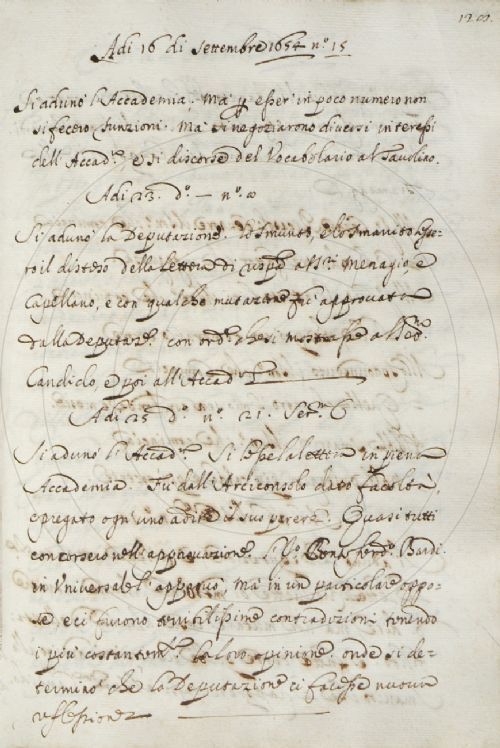 Adi 16 di Settembre 1654 n.º 15
Si adunò l'Accademia; Ma p esser in poco numero non
si fecero funzioni. Ma si negoziarono diversi interessi
dell'Accad.ª e si discorse del Vocabolario al Tavolino.
Adi 23 d.º — n.º
Si adunò la Deputazione. Lo Smunto, e lo Smarrito
ro il disteso della lettera di al S.r Menagio e
Capellano, e con qualche mutazione fu approvata
dalla Deputaz.e con ord.e che si mostrasse al Se.r
Candido, e poi all'Accad.ª
Adi 25 d.º n.º 21.
Si adunò l'Accad.ª Si lesse la lettera in piena
Accademia Fu dall'Arciconsolo dato facoltà,
e pregato ogn'uno a dire il suo parere. Quasi tutti
concorsero nell'approvazione. Bardi
in Universale l'approvò, Ma in un particolare oppo-
se, e ci furono contradizioni tenendo
i più costantem.te la loro opinione, onde si de-
terminò che la Deputazione ci facesse nuova
reflessione